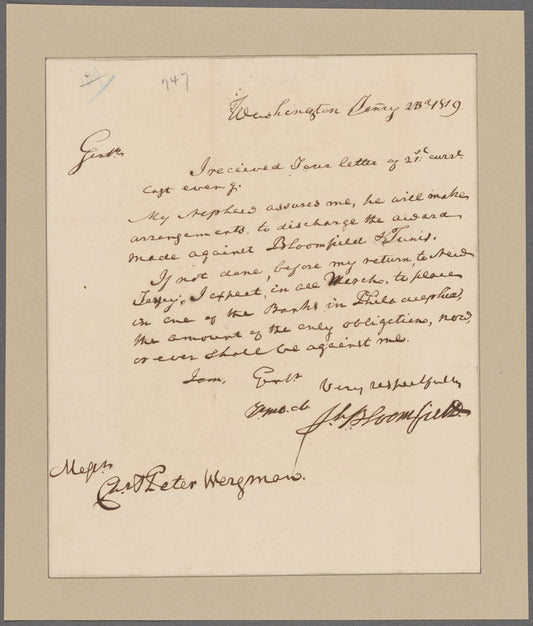 747
Washington Jany 23d 1819
Gentn
I received Your letter of 21st currt
last eveng.
My Nephew assures me, he will make
arrangements, to discharge the award
made against Bloomfield & Tunis.
If not done, before my return to New
Jersey, I expect, in all March, to place
in one of the Banks in Philadelphia,
the amount of the only obligation, now,
or ever shall be against me.
I am, Gentn
Very respectfully
Jh Bloomfield
Messrs
& Peter Wergman.